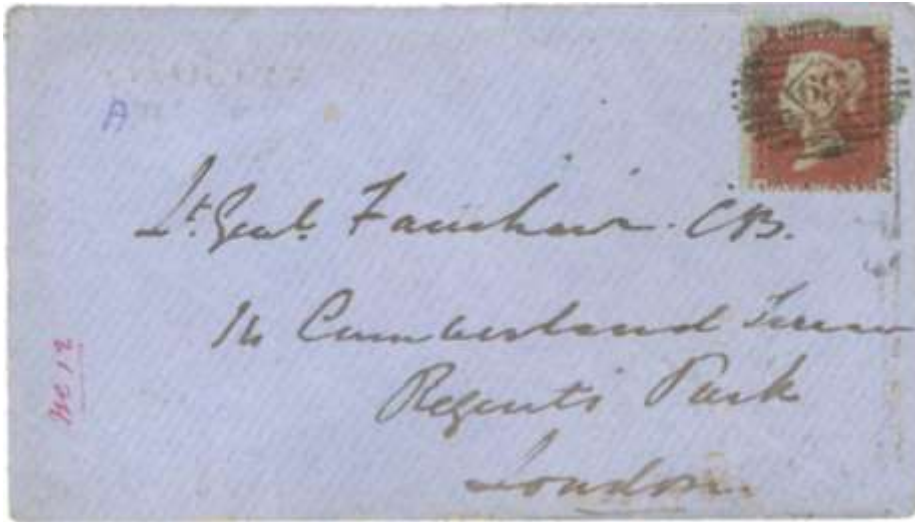 A
Lt. Genl. Fanshawe. CB.
14 Cumberland Terrace
Regents Park
London